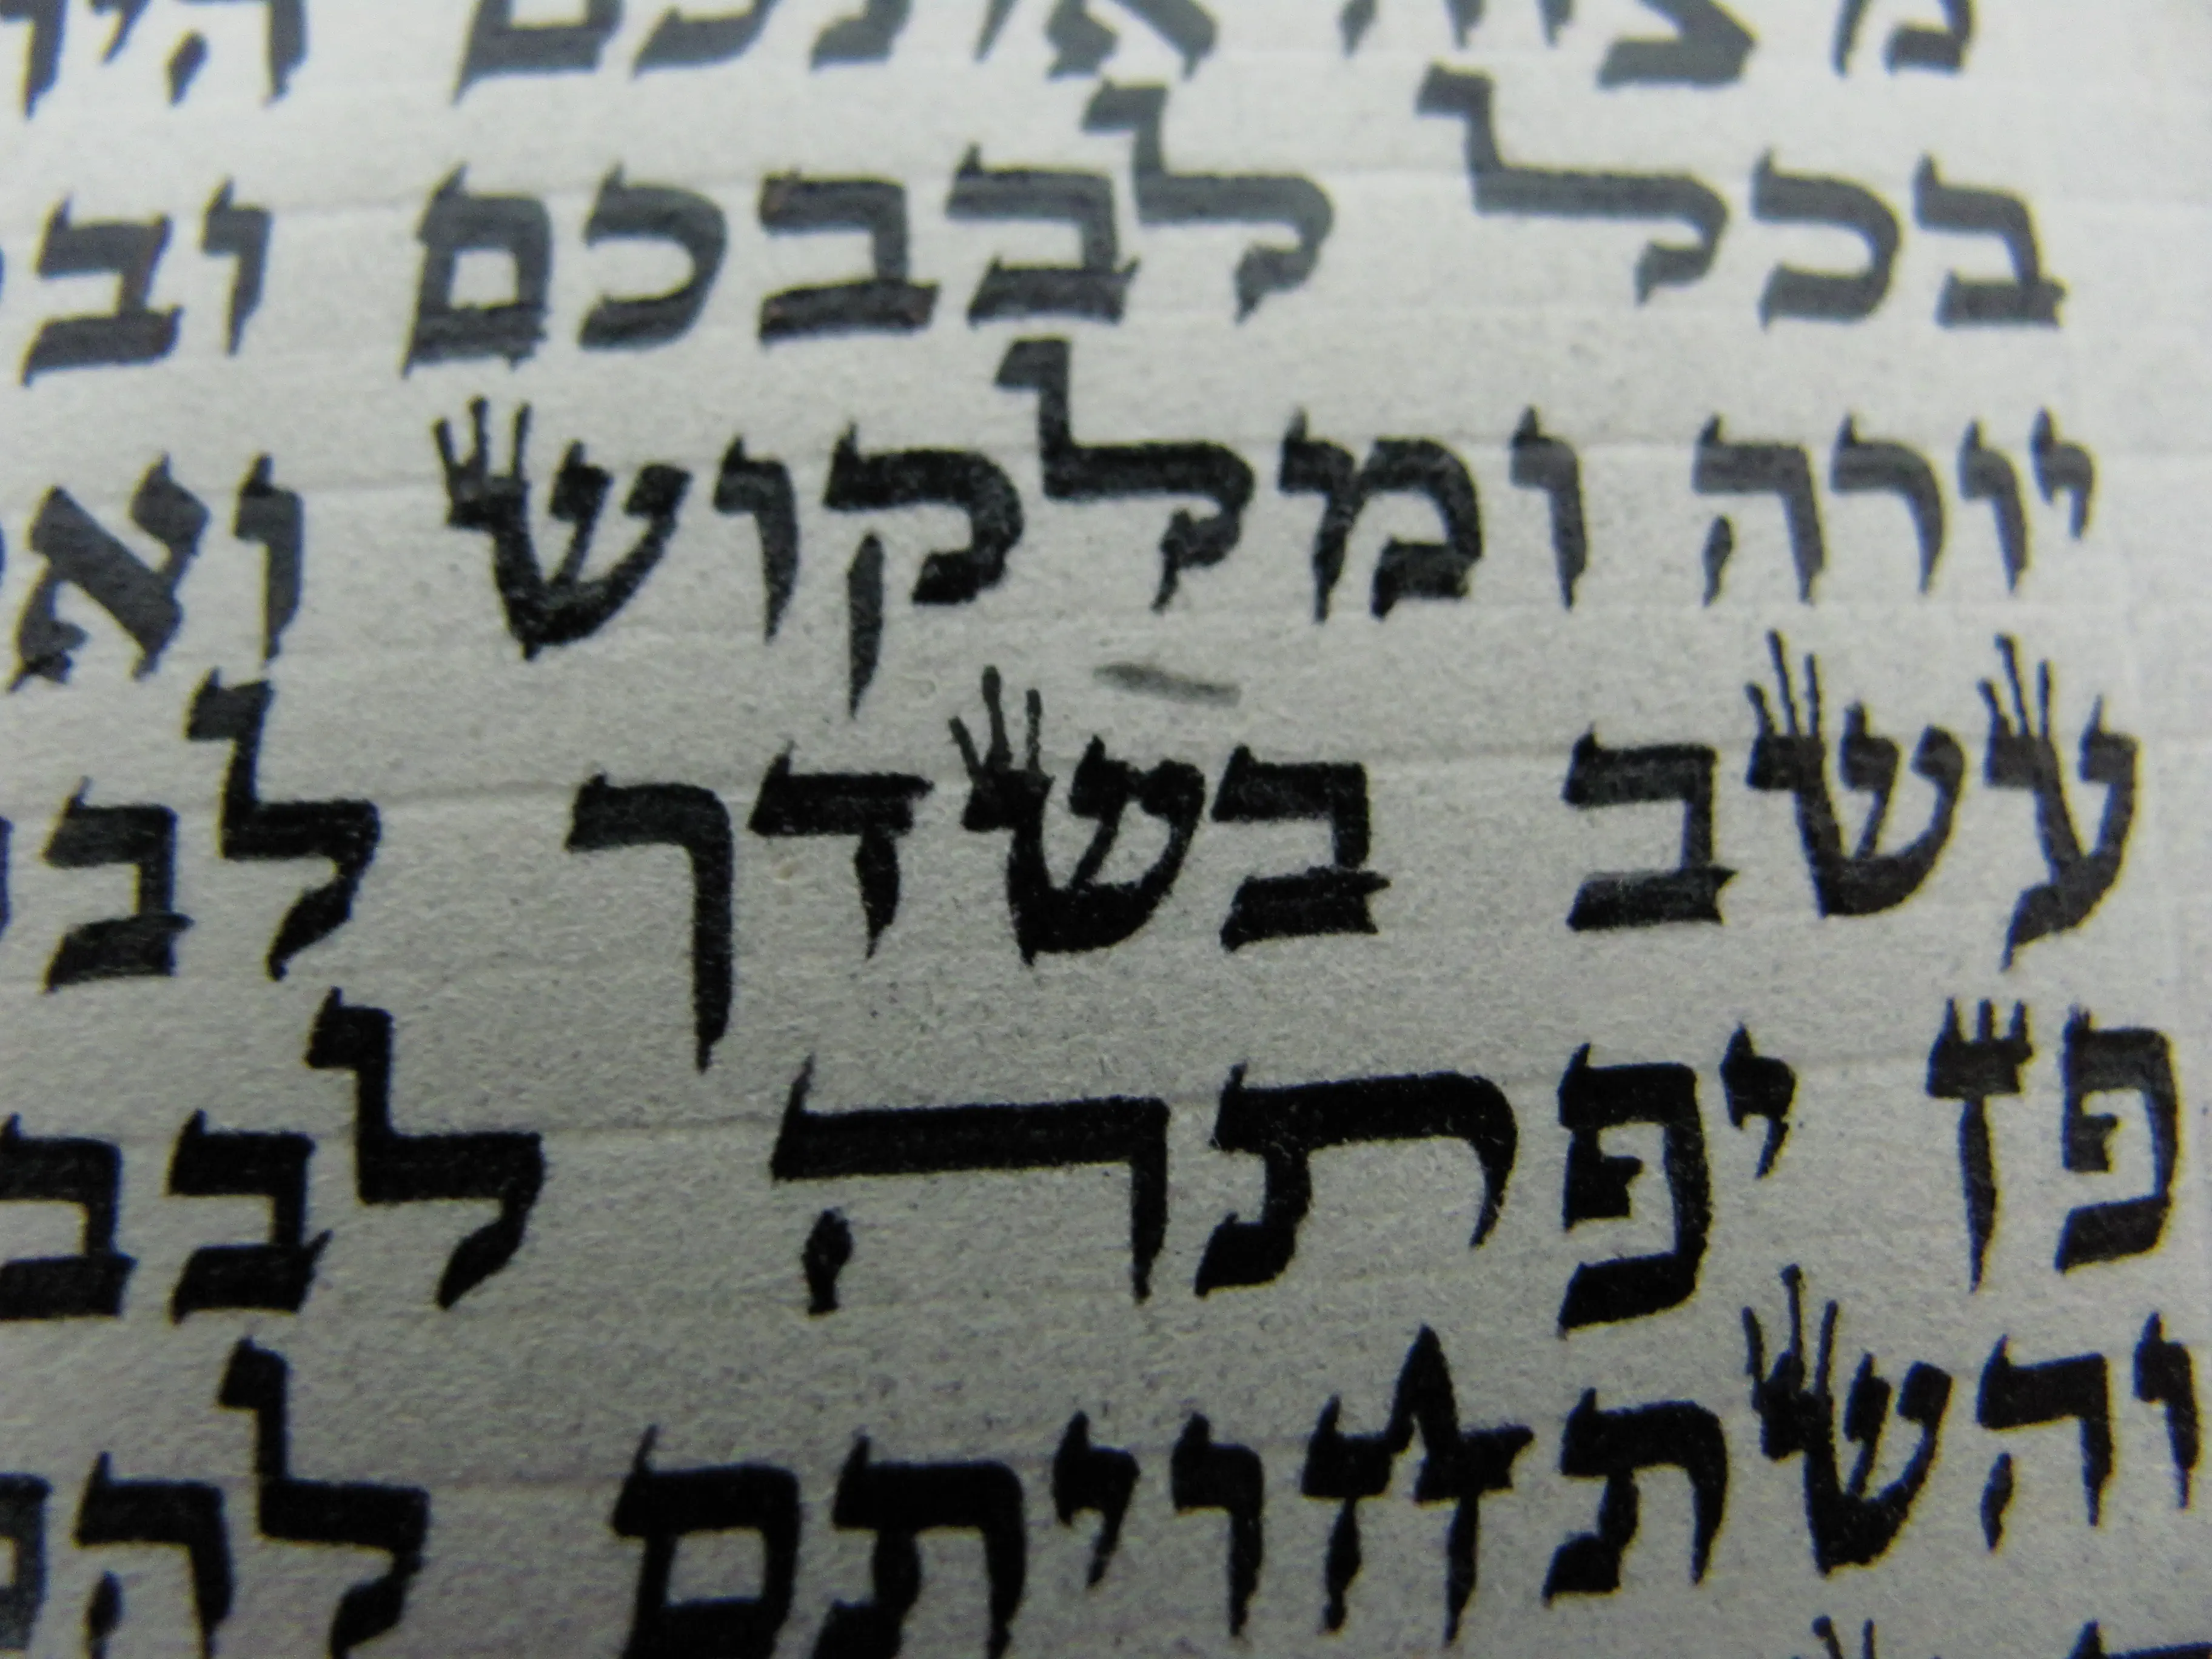 מצוה אתכם היו
בכל לבבכם וב
יורה ומלקוש וא
עשב בשדך לב
פן יפתה לבב
והשתחויתם להם